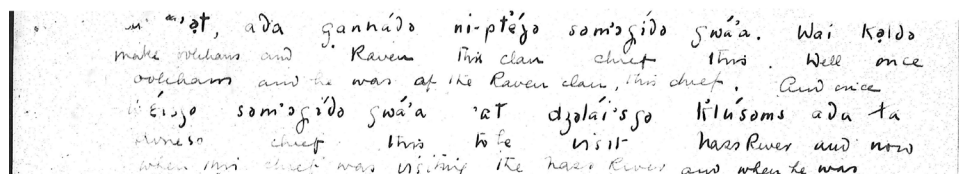 'ət, ada gannádə ni-ptéɣə səm'ɔgídə gwá'a. Wai kəldə
make oolichans and Raven this clan chief this. Well once
oolichans and he was of the Raven clan, this chief. And once
səm'ɔgídə gwá'a 'at dzəlái'sgə k'lúsəms ada ta
chief this to be visit Nass River and now
when this chief was visiting the Nass River and when he was